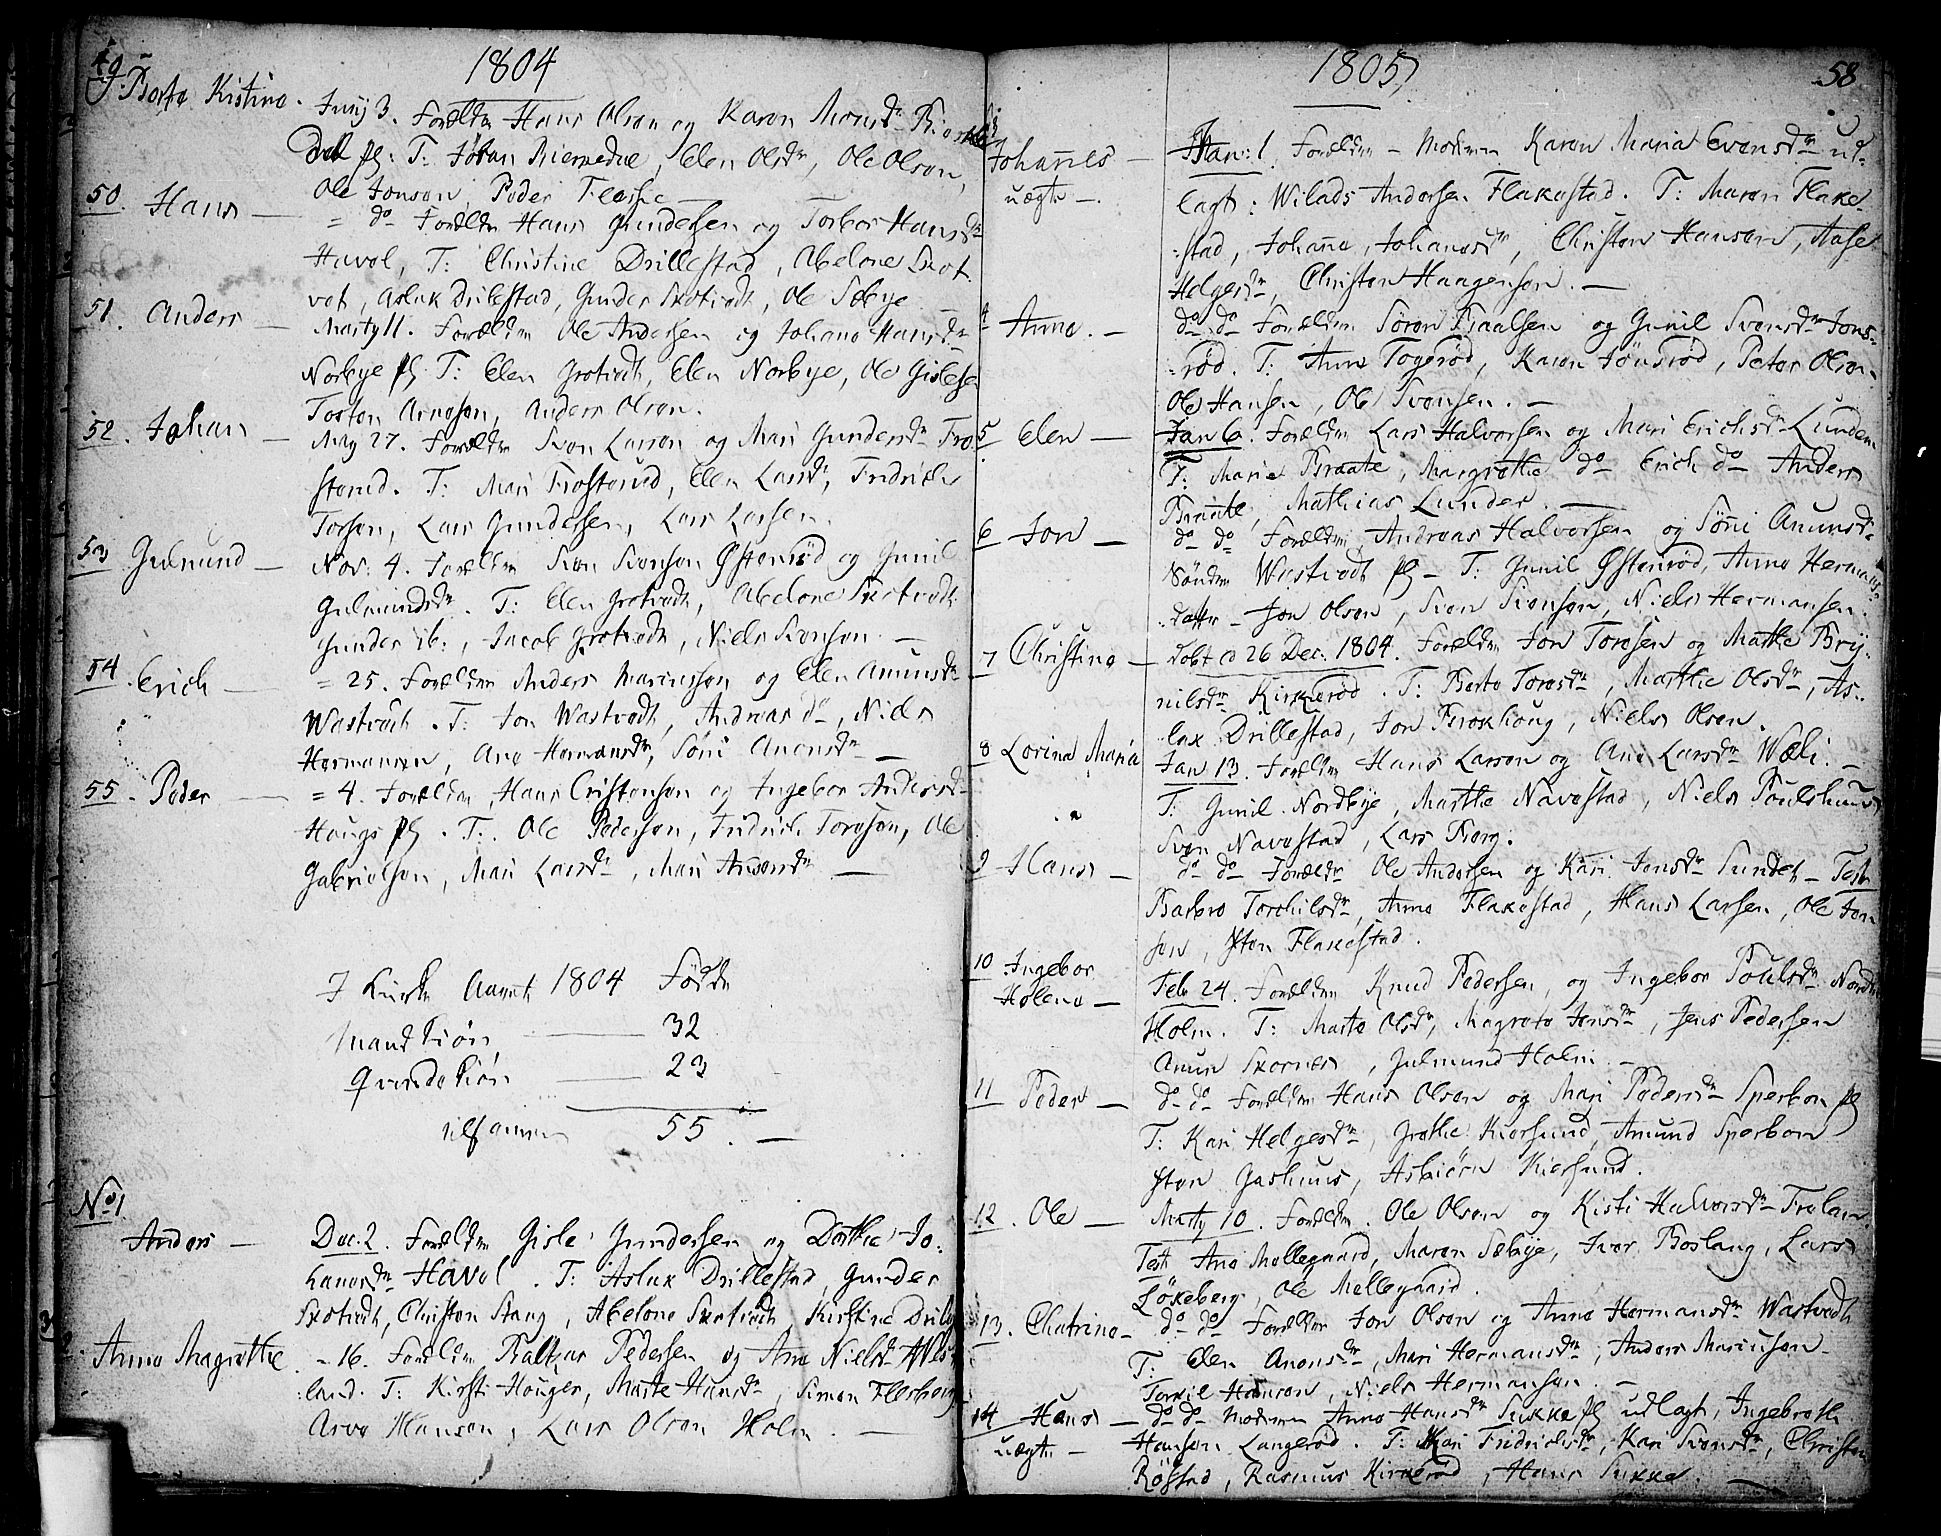 1804
49. Berte Kistine. Junij 3. Forældr Hans Olson og Karen Mons dr
dal pl: T: Johan, Elen Ols dr, Ole Olson,
Ole Jonson, Peder
50. Hans — = do Forældr Hans Gundersen og Torbor Hans dr
Havol, T: Christine Drillestad, Abelone Skot
vet, Aslak Drillestad, Gunder Skotvedt, Ole Sæbye
51. Anders — Martij 11. Forældr Ole Andersen og Johane Hans dr
Norbye pl T: Elen Grotvedt, Elen Norbye, Ole Gislesen
Tosten Arneson, Anders Olson.
52. Johan — May 27. Forældr Sven Larson og Mari Gunders dr Fro
sterud. T: Mari Frosterud, Elen Lars dr, Fridrich
Torson, Lars Gundersen, Lars Larsen.
53 Gulmund — Nov: 4. Forældr Sven Svenson Østenrød og Gunil
Gulmunds dr. T: Elen Grotvedt, Abelone Skotvedt
Gunder ib:, Jacob Grotvedt, Niels Svenson. —
54. Erich — = 25. Forældr Anders Mariusson og Elen Amunds dr
Wastvedt. T: Jon Wastvedt, Andreas do, Niels
Hermansen, Ane Hermans dr, Søni Anons dr —
55. Peder — = 4. Forældr, Hans Cristenson og Ingebor Anders dr
Hougs pl. T: Ole Pederson, Fridrich Toreson, Ole
Gabrielson, Mari Lars dr, Mari dr —
I Aaret 1804 Fødde
Mandkiøn — 32
Qvindekiøn — 23
55. —
No 1.
Anders — Dec. 2. Forældr Gisle Gundersen og Dorthe Jo-
hanes dr Havol. T: Aslak Drillestad, Gunder
Skotvedt, Christen Stang, Abelone Skotvedt, Kirstine
2. Anne Magrethe — 16. Forældr Baltzar Pedersen og Ane Niels dr
land. T: Kirsti Houger, Marte Hans dr, Simen
Arve Hanson, Lars Olson Holm. —
1805 58
3 Johannes — uægte —. Jan: 1. Forældr — Moderen Karen Maria Evens dr ud-
lagt: Wilads Andersen Flakestad. T: Maren Flake-
stad, Johane, Johanes dr, Christen Hanson, Aase
Helges dr, Christen Haagenson. —
4 Anne. — do do Forældr Søren Paalsen og Gunil Svens dr Jons-
rød. T: Anne Togerød, Karen Jonsrød, Peter Olson
Ole Hansen, Ole Svensen. —
5 Elen — Jan 6. Forældr Lars Halvorsen og Mari Erichs dr Lunden
T: Maria Braate, Margrethe do Erich do Anders
Braate, Mathias Lunder. —
6 Jon — do do Forældr Andreas Halvorsen og Søni Amuns dr
Søndre Wastvedt pl — T: Gunil Østenrød, Anne Hermans-
datter — Jon Olson, Sven Svenson, Niels Hermansen.
7 Christine — døbt d 26 Dec. 1804. Forældr Jon Toresen og Mathe Bry-
nils dr Kirkerød. T: Berte Tores dr, Marthe Ols dr, As-
lak Drillestad, Jon, Niels Olson.
8 Lorina Maria Jan 13. Forældr Hans Larson og Ane Lars dr Wæli. —
T: Gunil Nordbye, Marthe Navestad, Niels
Sven Navestad, Lars Borg.
9 Hans — do do Forældr Ole Andersen og Kari Jons dr Sundet — Test
Barbro Torchils dr, Anne Flakestad, Hans Larsen, Ole Jon
son, Sten Flakestad.
10 Ingebor Helena — Feb 24. Forældr Knud Pedersen og Ingebor Pouls dr Nordre
Holm. T: Marte Ols dr, Magrete Jens dr, Jens Pedersen
Amun Skornes, Gulmund Holm —
11 Peder — do do Forældr Hans Olson og Mari Peders dr Sperbon pl
T: Kari Helges dr, Grethe Kiersund, Amund Sperbon
Sten, Asbiørn Kiersund.
12. Ole — Martij 10. Forældr. Ole Olson og Kisti Halvors dr
Test Ane Mellegaard, Maren Sæbye, Iver Boslang, Lars
Løkeberg, Ole Mellegaard.
13. Chatrine — do do Forældre Jon Olson og Anne Hermans dr Wastvedt
T: Elen Anons dr, Mari Hermans dr, Anders Mariuson —
Torkil Hanson, Niels Hermanson. —
14 Hans — uægte — do do Moderen Anne Hans dr Sukke pl udlagt, Ingebreth
Hanson Langerød. T: Mari Fridrichs dr, Kari Svens dr, Christen
Røstad, Rasmus Kirkerød, Hans Sukke. —